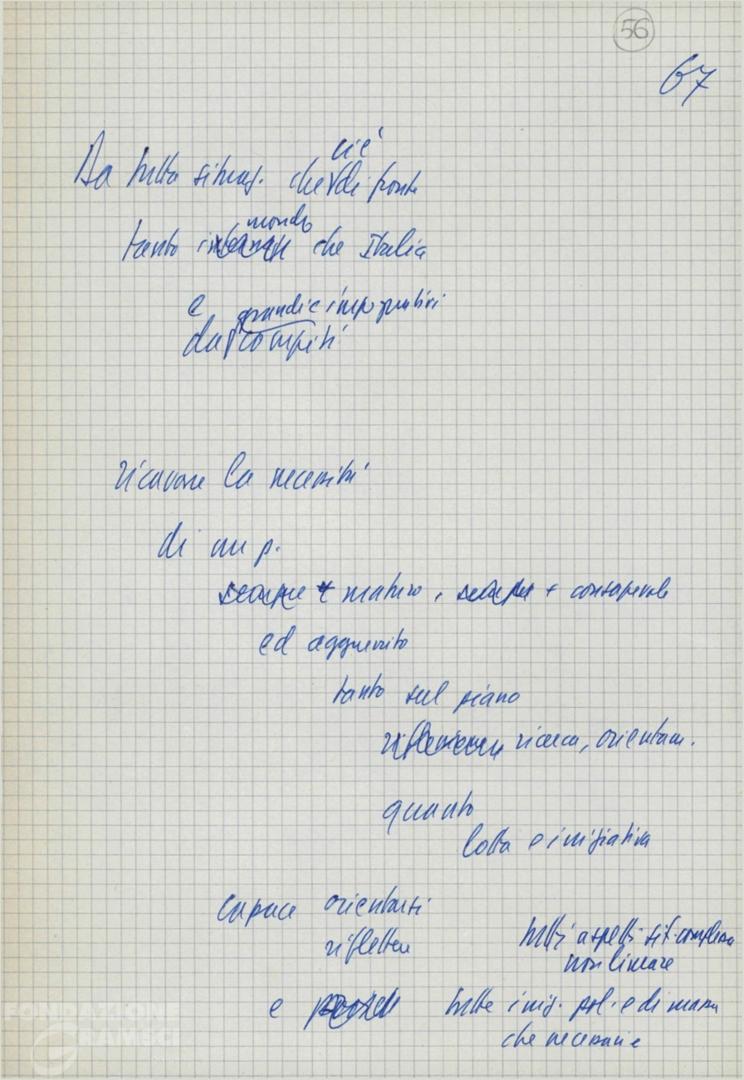 56
67
c'è
Da tutta situaz. che di fronte
mondo
tanto che Italia
e grandi e impegnativi
dai compiti
ricavare la necessità
di un p.
sempre + maturo, sempre + consapevole
ed agguerrito
tanto sul piano
riflessione ricerca, orientam.
quanto
lotta e iniziativa
capace orientarsi
riflettere
tutti aspetti sit. complessa
non lineare
e tutte iniz. pol. e di massa
che necessarie
FONDAZIONE
GRAMSCI